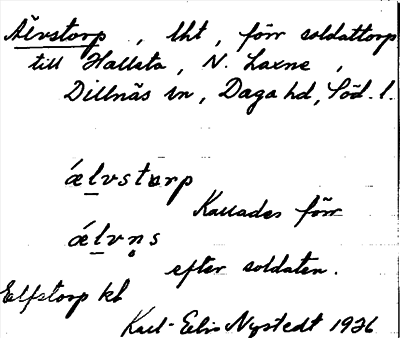 Älvstorp, lht, förr soldattorp
till Hallsta, N. Laxne,
Dillnäs sn, Daga hd, Söd. l.
ǽlvstɒrp
Kallades förr
ǽlvn̥s
efter soldaten.
Elfstorp kl
Karl-Elis Nystedt 1936